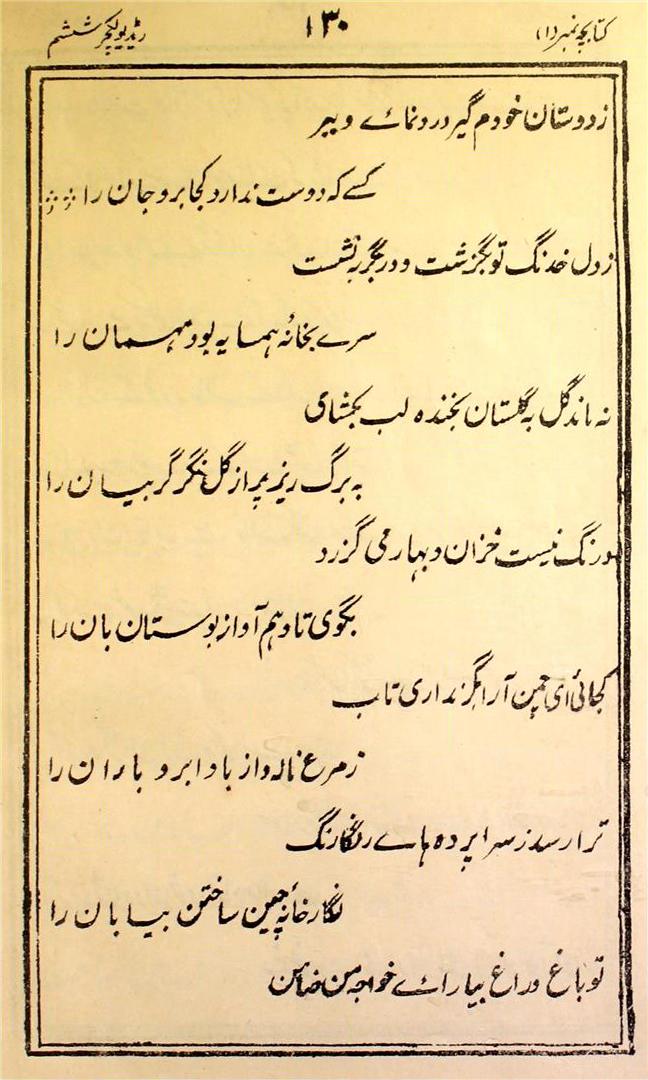 کتابچہ نمبر (۱)
۱۳۰
ریڈیو لیکچر ششم
ز دوستان خودم گیر در دنمائے و ببر
کسے کہ دوست ندارد کجا برو جان را
ز دل خدنگ تو بگزشت و در جگر بنشست
سرے بخانۂ ہمسایہ بود مہمان را
نہ ماند گل بہ گلستان بخندہ لب بکشای
بہ برگ ریز پر از گل نگر گریبان را
درنگ نیست خزان و بہار می گزرد
بگوی تا دہم آواز بوستان بان را
کجائی ای چمن آرا گر نداری تاب
ز مرغ نالہ و از باد ابر و باران را
ترا رسد ز سراپردہ ہاے رنگارنگ
نگارخانۂ چین ساختن بیابان را
تو باغ و راغ بیارائے خواجہ من ضامن